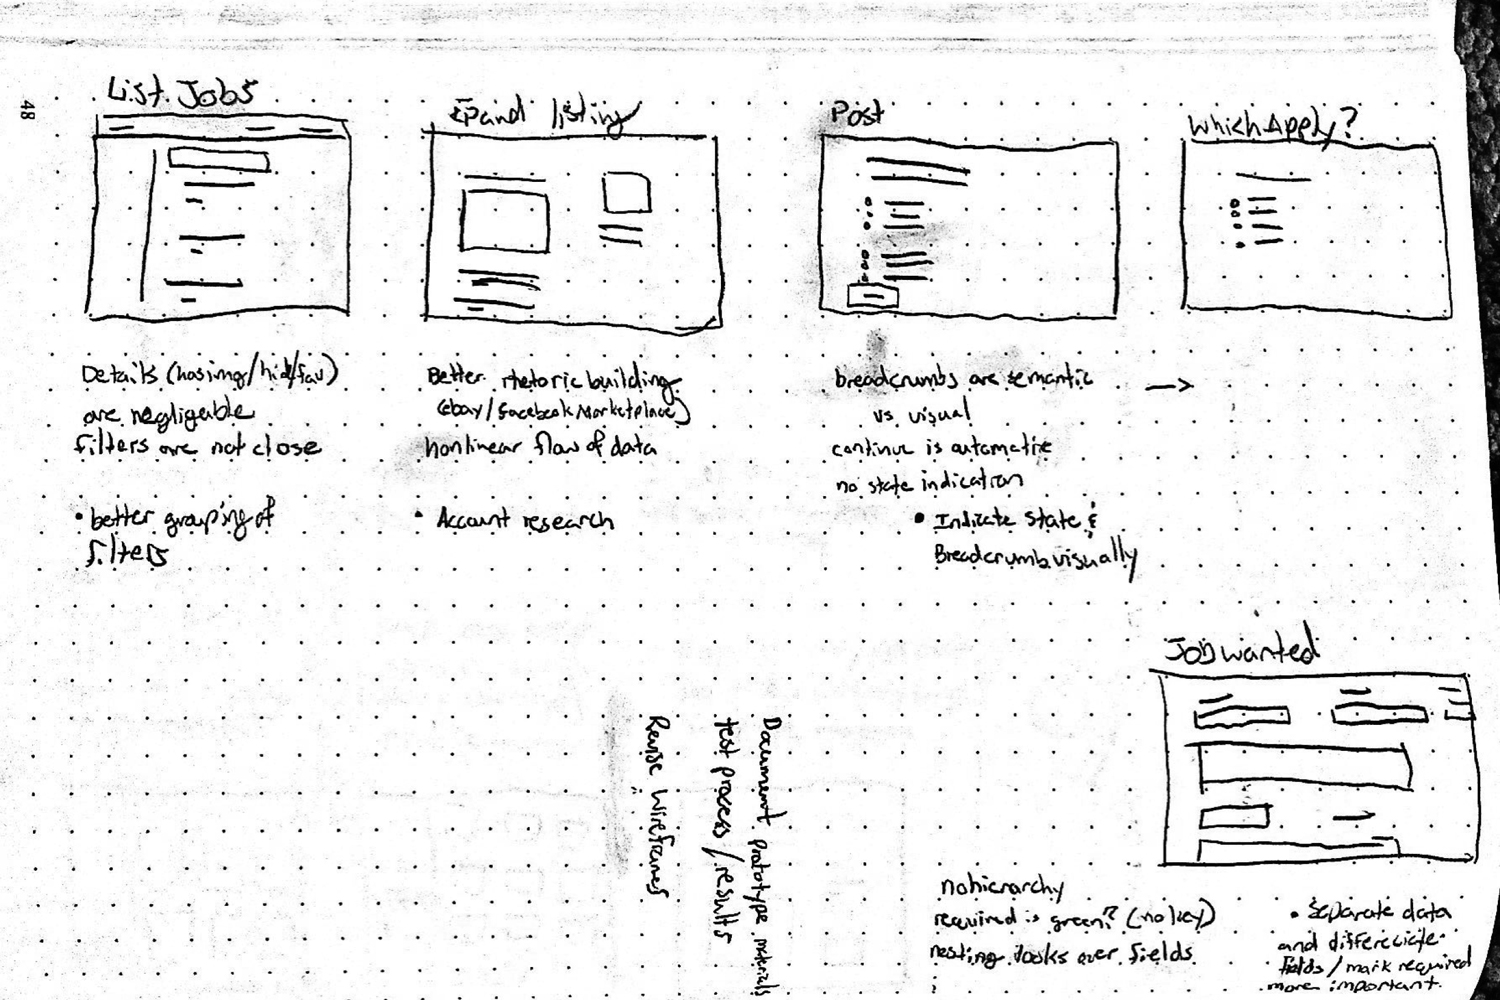 48
List Jobs
Expand listing
Post
Which Apply?
Details (hasimg/hid/fav)
are negligable
filters are not close
• better grouping of
filters
Better rhetoric building
(ebay/facebook marketplace)
nonlinear flow of data
• Account research
breadcrumbs are semantic →
vs visual
continue is automatic
no state indication
• Indicate state &
Breadcrumb visually
Job wanted
Document prototype materials
test process/results
Revise Wireframes
no hierarchy
required is green? (no key)
nesting looks over fields
• Separate data
and differeciate
fields/mark required
more important.